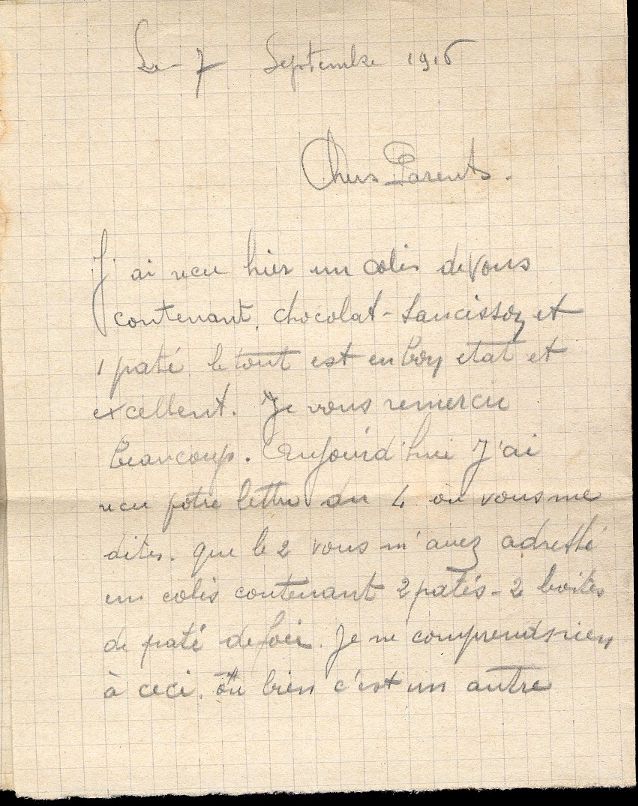 Le 7 Septembre 1916
Chers Parents.
J'ai recu hier un colis de vous
contenant, chocolat - Saucisson et
1 paté le tout est en bon etat et
excellent. Je vous remercie
beaucoup. Aujourd'hui J'ai
recu votre lettre du 4 ou vous me
dites. que le 2 vous m'avez adressé
un colis contenant 2 patés - 2 boites
de paté de foie. Je ne comprends rien
à ceci. ou bien c'est un autre